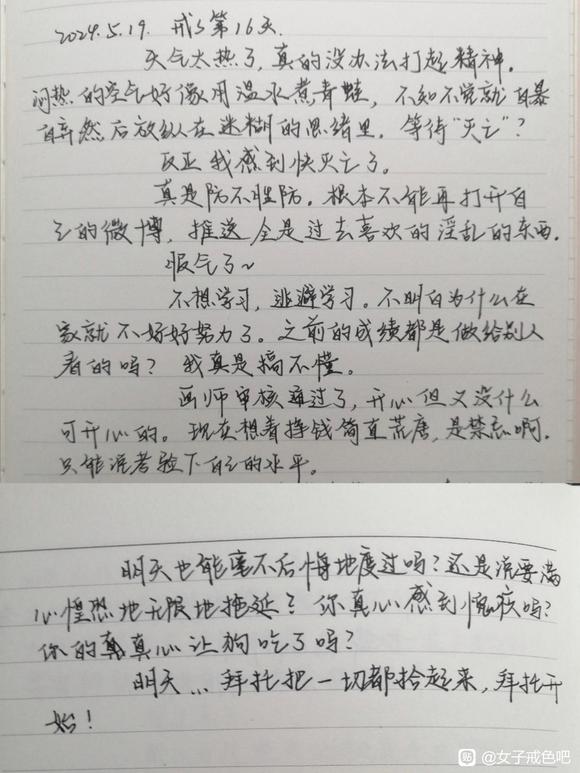 2024.5.19. 戒s第16天.
天气太热了,真的没办法打起精神。
闷热的空气好像用温水煮青蛙,不知不觉就自暴
自弃然后放纵在迷糊的思绪里。等待“灭亡”?
反正我感到快灭亡了。
真是防不胜防。根本不能再打开自
己的微博,推送全是过去喜欢的淫乱的东西.
服气了~
不想学习,逃避学习。不明白为什么在
家就不好好努力了。之前的成绩都是做给别人
看的吗?我真是搞不懂。
画师审核通过了,开心但又没什么
可开心的。现在想着挣钱简直荒唐,是禁忌啊。
只能说考验下自己的水平。
明天也能毫不后悔地度过吗?还是说要满
心惶恐地无限地拖延?你真心感到愧疚吗?
你的真心让狗吃了吗?
明天...拜托把一切都拾起来,拜托开
始!
贴 @女子戒色吧